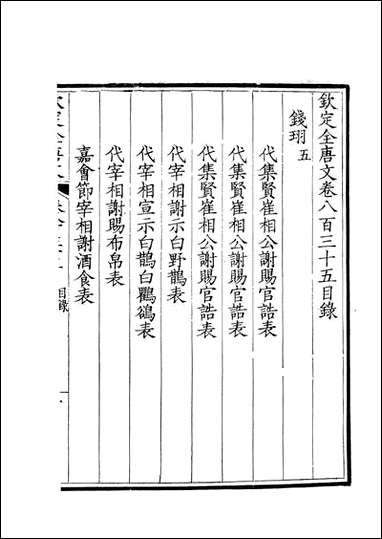 欽定全唐文卷八百三十五目錄
錢珝五
代集賢崔相公謝賜官誥表
代集賢崔相公謝賜官誥表
代集賢崔相公謝賜官誥表
代宰相謝示白野鵲表
代宰相宣示白鵲白鸜鵒表
代宰相謝賜布帛表
嘉會節宰相謝酒食表
目錄